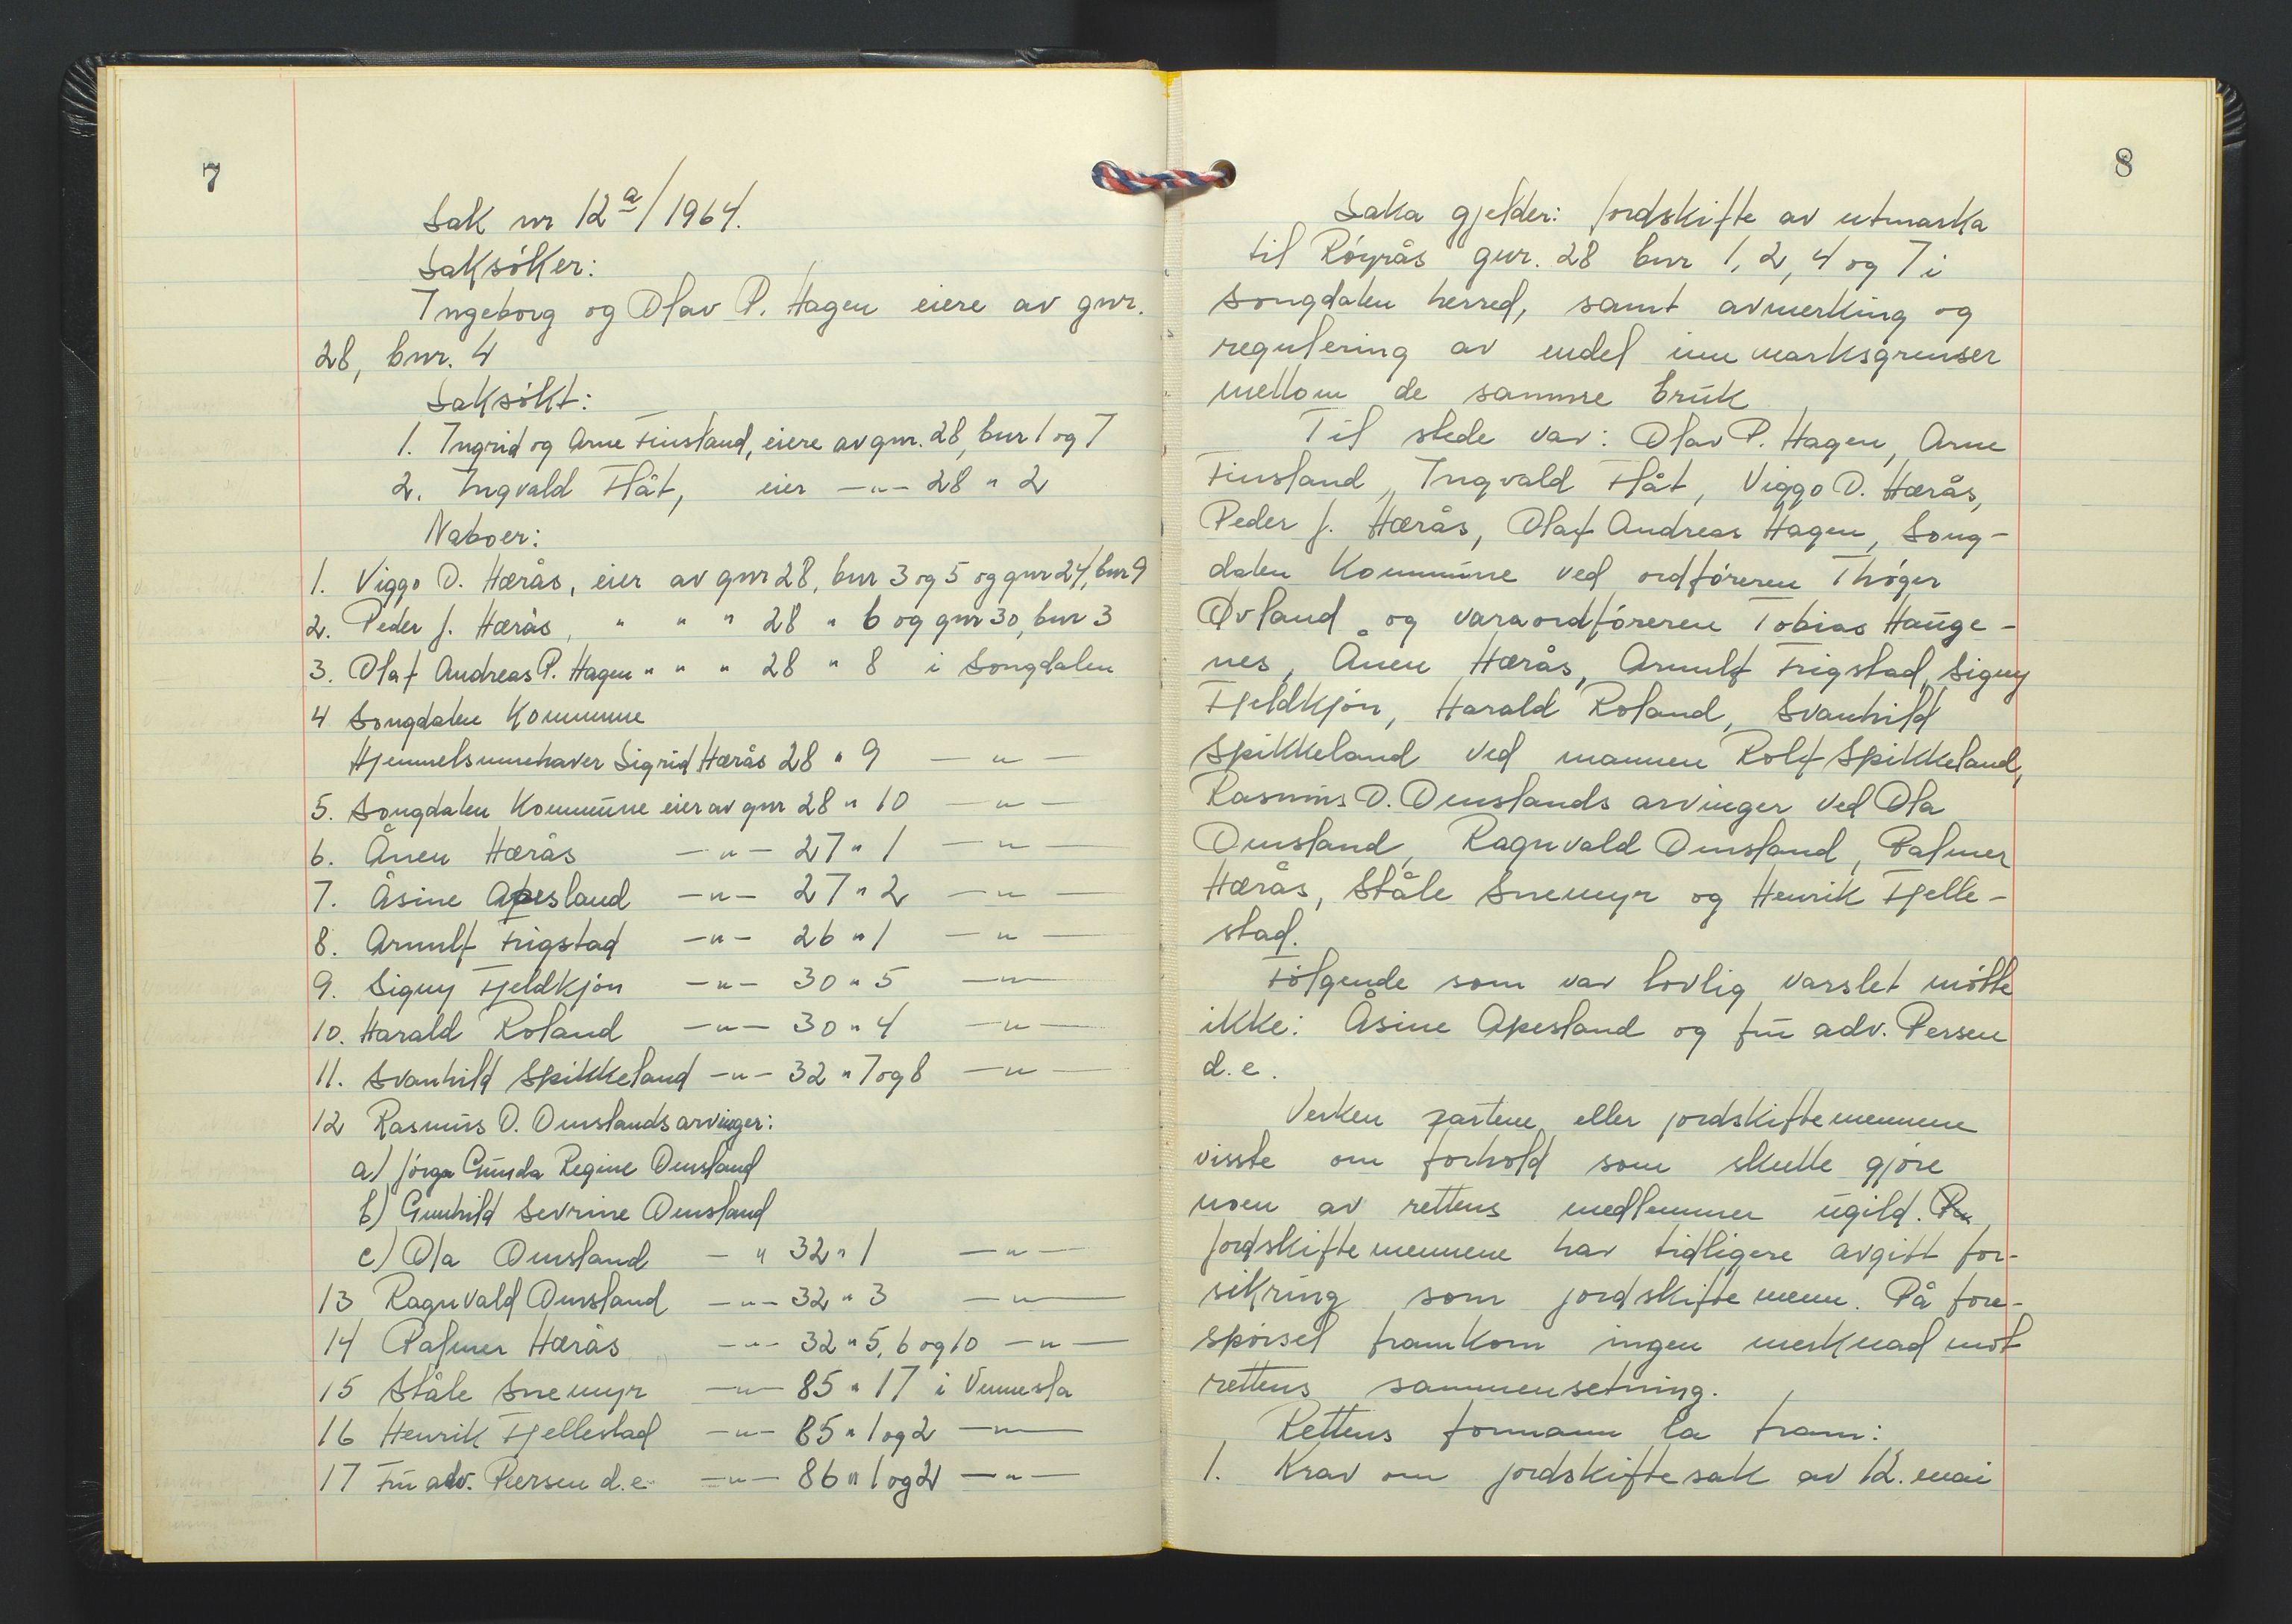 7
Sak nr 12a/1964.
Saksöker:
Ingeborg og Olav P. Hagen eiere av gnr.
28, bnr. 4
Saksökt:
1. Ingrid og Arne Finsland, eiere av gnr. 28, bnr 1 og 7
2. Ingvald Flåt, eier —"— 28 " 2
Naboer:
1. Viggo D. Hærås, eier av gnr 28, bnr 3 og 5 og gnr 24, bnr 9
2. Peder J. Hærås, " " " 28 " 6 og gnr 30, bnr 3
3. Olaf Andreas P. Hagen " " " 28 " 8 i Songdalen
4 Songdalen Kommune
Hjemmelsinnehaver Sigrid Hærås 28 " 9 —"—
5. Songdalen Kommune eier av gnr 28 " 10 —"—
6. Ånen Hærås —"— 27 " 1 —"—
7. Åsine Apesland —"— 27 " 2 —"—
8. Arnulf Frigstad —"— 26 " 1 —"—
9. Signy Fjeldkjön —"— 30 " 5 —"—
10. Harald Roland —"— 30 " 4 —"—
11. Svanhild Spikkeland —"— 32 " 7 og 8 —"—
12 Rasmus O. Omslands arvinger:
a) Jörga Gunda Regine Omsland
b) Gunhild Sevrine Omsland
c) Ola Omsland — " 32 " 1 —"—
13 Ragnvald Omsland —"— 32 " 3 —"—
14 Palmer Hærås —"— 32 " 5, 6 og 10 —"—
15 Ståle Snemyr —"— 85 " 17 i Vennesla
16 Henrik Fjellestad —"— 85 " 1 og 2 —"—
17 Fru adv. Persen d.e. —"— 86 " 1 og 2 —"—
8
Saka gjelder: Jordskifte av utmarka
til Röyrås gnr. 28 bnr 1, 2, 4 og 7 i
Songdalen herred, samt avmerking og
regulering av endel innmarksgrenser
mellom de samme bruk
Til stede var: Olav P. Hagen, Arne
Finsland, Ingvald Flåt, Viggo D. Hærås,
Peder J. Hærås, Olaf Andreas Hagen, Song-
dalen Kommune ved ordföreren Thöger
Øvland og varaordföreren Tobias Hauge-
nes, Ånen Hærås, Arnulf Frigstad, Signy
Fjeldkjön, Harald Roland, Svanhild
Spikkeland ved mannen Rolf Spikkeland,
Rasmus O. Omslands arvinger ved Ola
Omsland, Ragnvald Omsland, Palmer
Hærås, Ståle Snemyr og Henrik Fjelle-
stad.
Fölgende som var lovlig varslet mötte
ikke: Åsine Apesland og fru adv. Persen
d.e.
Verken partene eller jordskiftemennene
visste om forhold som skulle gjöre
noen av rettens medlemmer ugild.
Jordskiftemennene har tidligere avgitt for-
sikring som jordskiftemenn. På fore-
spörsel framkom ingen merknad mot
rettens sammensetning.
Rettens formann la fram:
1. Krav om jordskiftesak av 12. mai